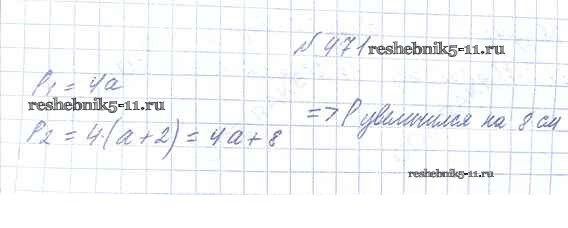 № 471
reshebnik5-11.ru
P₁ = 4a
reshebnik5-11.ru
P₂ = 4·(a+2) = 4a+8
=> P увеличился на 8 см
reshebnik5-11.ru